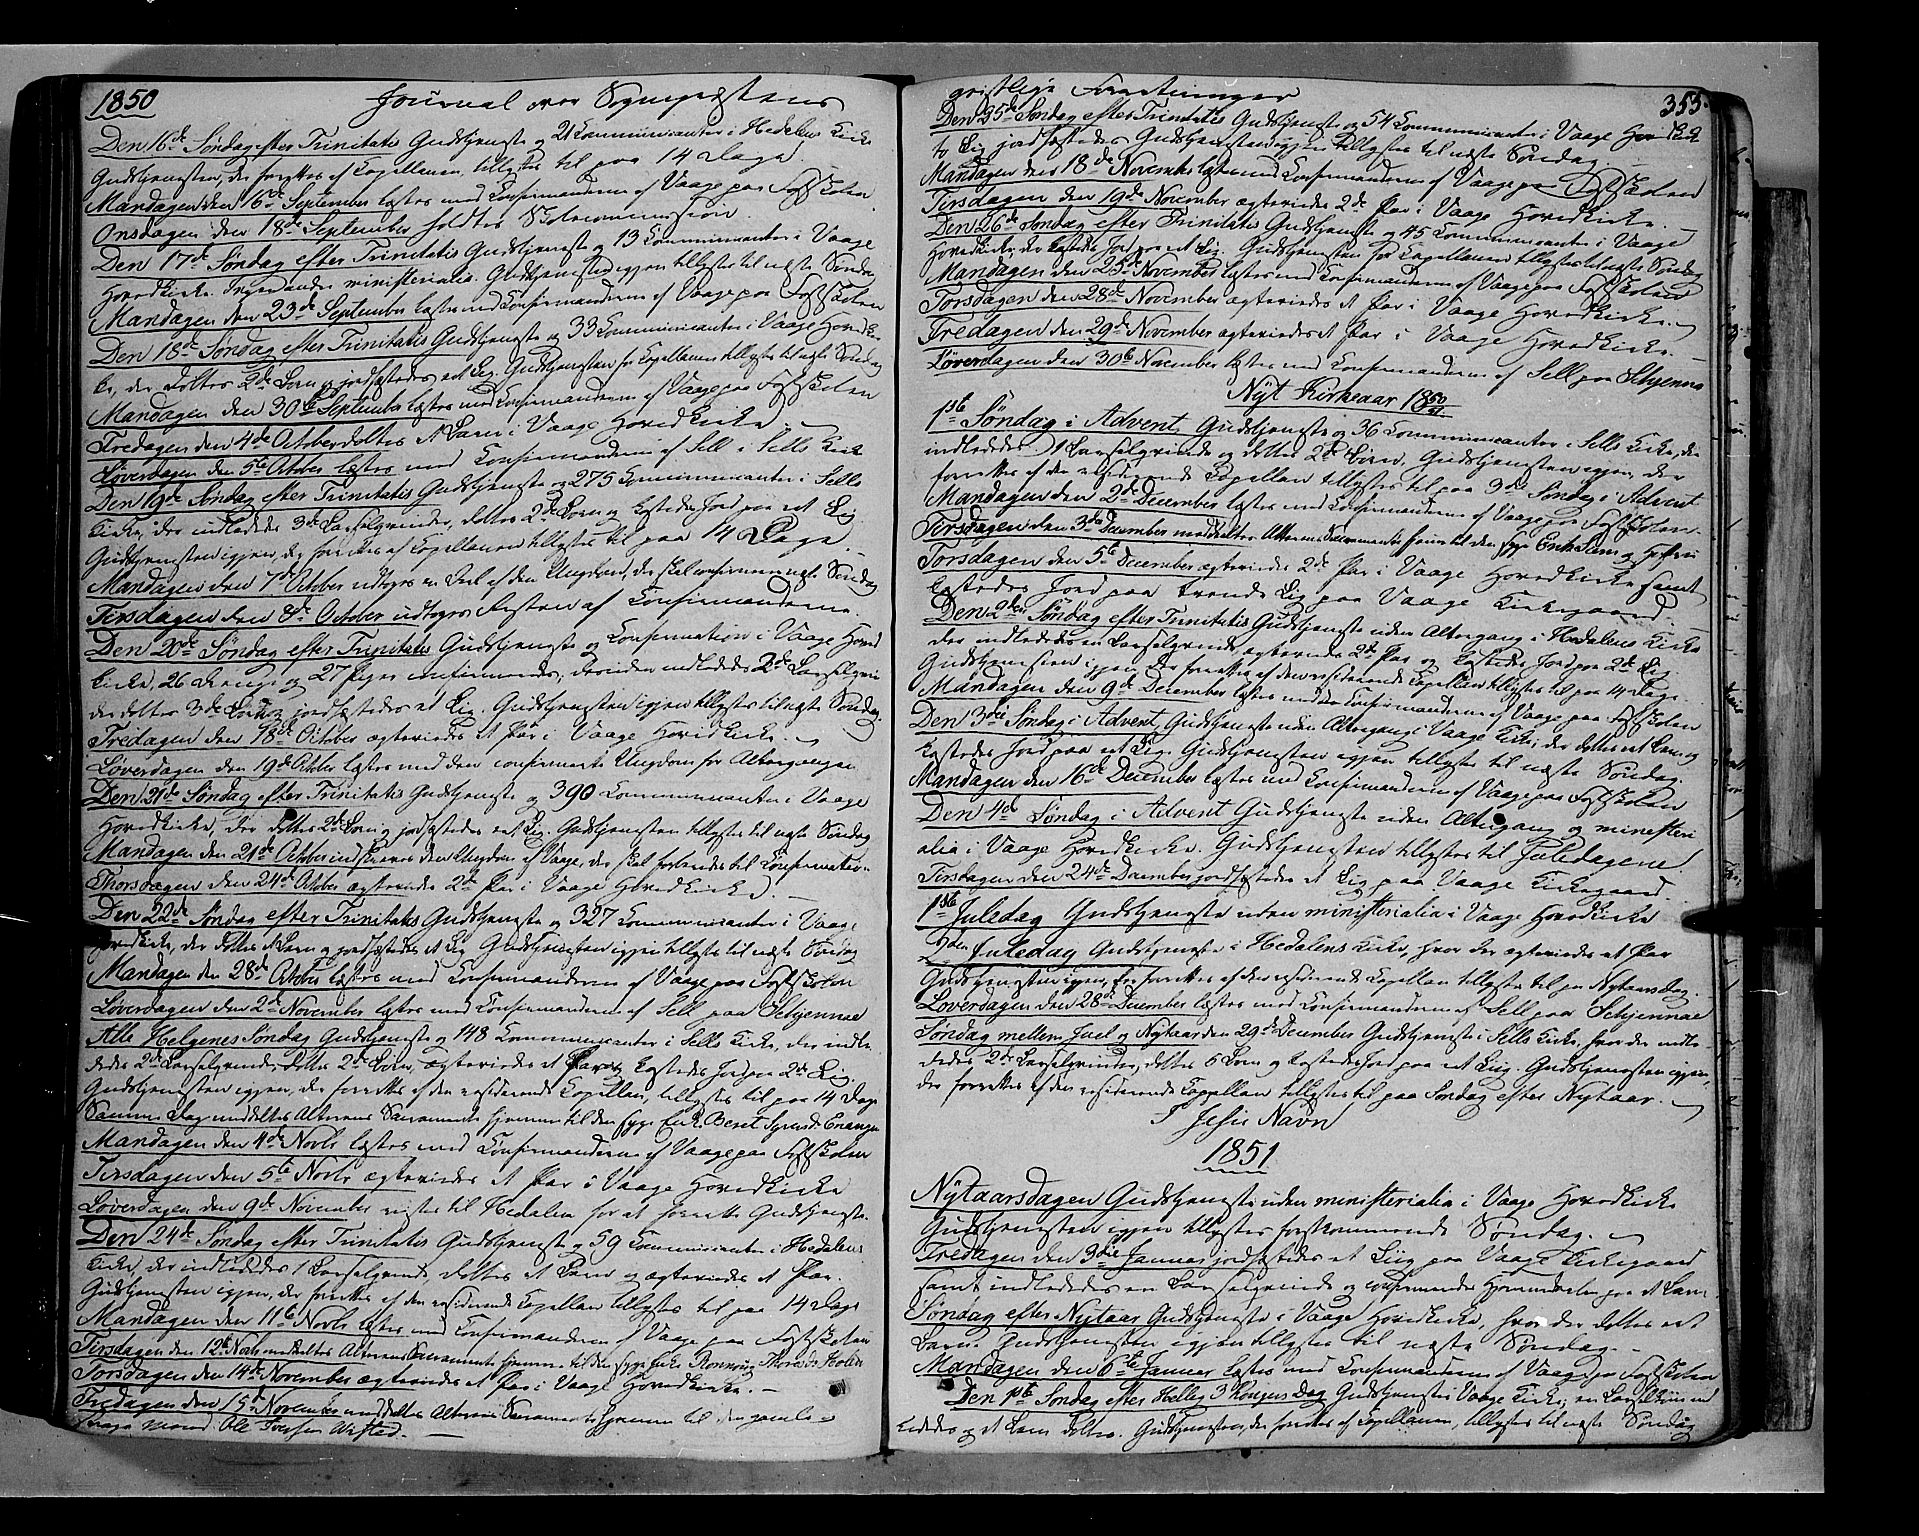 1850
Journal over Sognepræstens
Den 16de Søndag efter Trinitatis Gudstjeneste og 21 Communicanter i Hedalens Kirke
Gudstjenesten, der forrettes af Capellanen, tillystes til paa 14 Dage.
Mandagen den 16de September læstes med Confirmanderne af Vaage paa Fastskolen
Onsdagen den 18de September holdtes Skolecommission.
Den 17de Søndag efter Trinitatis Gudstjeneste og 13 Communicanter i Vaage
Hovedkirke. Ingen andre ministerialia. Gudstjenesten igjen tillystes til næste Søndag
Mandagen den 23de September læstes med Confirmanderne af Vaage paa Fastskolen
Den 18de Søndag efter Trinitatis Gudstjeneste og 33 Communicanter i Vaage Hovedkir-
ke, der døbtes 2de Børn og jordfæstedes et Lig. Gudstjenesten for Capellanen tillystes til næste Søndag
Mandagen den 30te September læstes med Confirmanderne af Vaage paa Fastskolen
Fredagen den 4de October døbtes et Barn i Vaage Hovedkirke.
Løverdagen den 5te October læstes med Confirmanderne af Sell i Sells Kirke
Den 19de Søndag efter Trinitatis Gudstjeneste og 275 Communicanter i Sells
Kirke, der indledes 3de Barselqvinder, døbtes 2de Børn og kastedes Jord paa et Lig
Gudstjenesten igjen, der forrettes af Capellanen tillystes til paa 14 Dage.
Mandagen den 7de October udtoges en Deel af den Ungdom, der skal confirmeres næste Søndag
Tirsdagen den 8de October udtoges Resten af Confirmanderne.
Den 20de Søndag efter Trinitatis Gudstjeneste og Confirmation i Vaage Hoved
Kirke, 26 Drenge og 27 Piger confirmeredes, desuden indledes 2de Barselqvin
der døbtes 3de Børn og jordfæstedes et Lig. Gudstjenesten igjen tillystes til næste Søndag.
Fredagen den 18de October ægteviedes et Par i Vaage Hovedkirke.
Løverdagen den 19de October læstes med den confirmerte Ungdom for Altergangen
Den 21de Søndag efter Trinitatis Gudstjeneste og 390 Communicanter i Vaage
Hovedkirke, der døbtes 2de Børn og jordfæstedes et Lig. Gudstjenesten tillystes til næste Søndag
Mandagen den 21de October indskreves den Ungdom af Vaage, der skal forberedes til Confirmation.
Thorsdagen den 24de October ægteviedes 2de Par i Vaage Hovedkirke.
Den 22de Søndag efter Trinitatis Gudstjeneste og 327 Communicanter i Vaage
Hovedkirke, der døbtes et Barn og jordfæstedes et Lig. Gudstjenesten igjen tillystes til næste Søndag
Mandagen den 28de October læstes med Confirmanderne af Vaage paa Fastskolen
Løverdagen den 2de November læstes med Confirmanderne af Sell paa Schjennæ
Alle Helgenes Søndag Gudstjeneste og 148 Communicanter i Sells Kirke, der indle
dedes 2de Barselqvinder, døbtes 2de Børn, ægteviedes et Par og kastedes Jord paa 2de Lig.
Gudstjenesten igjen, der forrettes af den residerende Capellan, tillystes til paa 14 Dage
Samme Dag meddeltes Alterens Sacramente hjemme til den syge Enke Beret
Mandagen den 4de Novbr læstes med Confirmanderne af Vaage paa Fastskolen
Tirsdagen den 5te Novbr ægteviedes et Par i Vaage Hovedkirke
Løverdagen den 9de November reiste til Hedalen for at forrette Gudstjeneste.
Den 24de Søndag efter Trinitatis Gudstjeneste og 59 Communicanter i Hedalens
Kirke, der indledes 1 Barselqvinde, døbtes et Barn og ægteviedes et Par.
Gudstjenesten igjen, der forrettes af den residerende Capellan tillystes til paa 14 Dage
Mandagen den 11te Novbr læstes med Confirmanderne af Vaage paa Fastskolen
Tirsdagen den 12te Novbr meddeltes Alterens Sacramente hjemme til den syge Enke Rønnøg Thoresdr Holen
Torsdagen den 14de November ægteviedes et Par i Vaage Hovedkirke.
Fredagen den 15de November meddeltes Alterens Sacramente hjemme til den gamle
svage Mand Ole Iversen
geistlige Forretninger
353.
Den 25de Søndag efter Trinitatis Gudstjeneste og 54 Communicanter i Vaage Hovedkirke
Lig jordfæstedes Gudstjenesten igjen tillystes til næste Søndag.
Mandagen den 18de November læstes med Confirmanderne af Vaage paa Fastskolen
Tirsdagen den 19de November ægteviedes 2de Par i Vaage Hovedkirke.
Den 26de Søndag efter Trinitatis Gudstjeneste og 45 Communicanter i Vaage
Hovedkirke, der kastedes Jord paa et Lig. Gudstjenesten for Capellanen tillystes til næste Søndag
Mandagen den 25de November læstes med Confirmanderne af Vaage paa Fastskolen
Torsdagen den 28de November ægteviedes et Par i Vaage Hovedkirke.
Fredagen den 29de November ægteviedes et Par i Vaage Hovedkirke.
Løverdagen den 30te November læstes med Confirmanderne af Sell paa Schjennæ
Nyt Kirkeaar 1850/51
1ste Søndag i Advent Gudstjeneste og 36 Communicanter i Sells Kirke, der
indledes 1 Barselqvinde og døbtes 2de Børn. Gudstjenesten igjen, der
forrettes af den residerende Capellan tillystes til paa 3de Søndag i Advent
Mandagen den 2de December læstes med Confirmanderne af Vaage paa Fastskolen.
Tirsdagen den 3die December meddeltes Alterens Sacramente hjemme til den syge
Torsdagen den 5te December ægteviedes 2de Par i Vaage Hovedkirke samt
kastedes Jord paa trende Lig paa Vaage Kirkegaard.
Den 2den Søndag efter Trinitatis Gudstjeneste uden Altergang i Hedalens Kirke
der indledes en Barselqvinde, ægteviedes 2de Par og kastedes Jord paa 2de Lig
Gudstjenesten igjen der forrettes af den residerende Capellan tillystes til paa 14 Dage
Mandagen den 9de December læstes med Confirmanderne af Vaage paa Fastskolen
Den 3die Søndag i Advent Gudstjeneste uden Altergang i Vaage Kirke, der døbtes et Barn og
kastedes Jord paa et Lig. Gudstjenesten igjen tillystes til næste Søndag.
Mandagen den 16de December læstes med Confirmanderne af Vaage paa Fastskolen
Den 4de Søndag i Advent Gudstjeneste uden Altergang og ministeri
alia i Vaage Hovedkirke. Gudstjenesten tillystes til Juledagene.
Tirsdagen den 24de December jordfæstedes et Lig paa Vaage Kirkegaard.
1ste Juledag Gudstjeneste uden ministerialia i Vaage Hovedkirke
2den Juledag Gudstjeneste i Hedalens Kirke, hvor der ægteviedes et Par
Gudstjenesten igjen, der forrettes af den residerende Capellan tillystes til paa Nytaarsdag.
Løverdagen den 28de December læstes med Confirmanderne af Sell paa Schjennæ
Søndag mellem Juel og Nytaar den 29de December Gudstjeneste i Sells Kirke, hvor der indle
dedes 2de Barselqvinder, døbtes 6 Børn og kastedes Jord paa et Lig. Gudstjenesten igjen,
der forrettes af den residerende Capellan tillystes til paa Søndag efter Nytaar.
I Jesu Navn
1851
Nytaarsdagen Gudstjeneste uden ministerialia i Vaage Hovedkirke
Gudstjenesten igjen tillystes førstkommende Søndag.
Fredagen den 3die Januar jordfæstedes et Lig paa Vaage Kirkegaard
samt indledes en Barselqvinde og confirmeredes Hjemmedaaben paa et Barn.
Søndag efter Nytaar Gudstjeneste i Vaage Hovedkirke, hvor der døbtes et
Barn. Gudstjenesten igjen tillystes til næste Søndag.
Mandagen den 6te Januar læstes med Confirmanderne af Vaage paa Fastskolen
Den 1ste Søndag efter Hellig 3 Kongers Dag Gudstjeneste i Vaage Kirke, en Barselkone ind
ledes og et Barn døbtes. Gudstjenesten, der forrettes af Capellanen, tillystes til næste Søndag